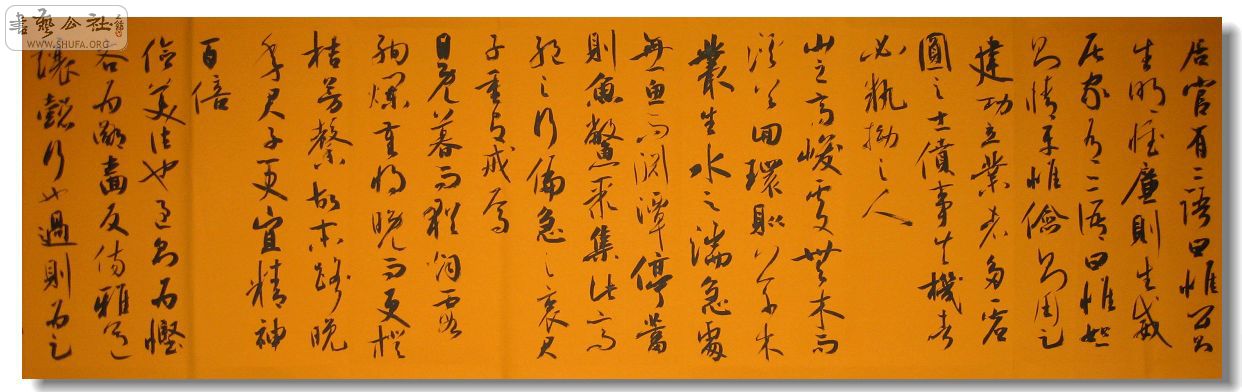 書藝公社
WWW.SHUFA.ORG
居官有二語曰惟公則
生明惟廉則生威
居家有二語曰惟恕
則情平惟儉則用足
建功立業者多虛
圓之士僨事失機者
必執拗之人
山之高峻處無木而
溪谷回環則草木
叢生水之湍急處
無魚而淵潭停蓄
則魚鱉聚集此高
絕之行偏急之衷君
子重有戒焉
日既暮而猶烟霞
絢爛歲將晚而更橙
桔芳馨故末路晚
年君子更宜精神
百倍
儉美德也過則為慳
吝為鄙嗇反傷雅道
讓懿行也過則為足